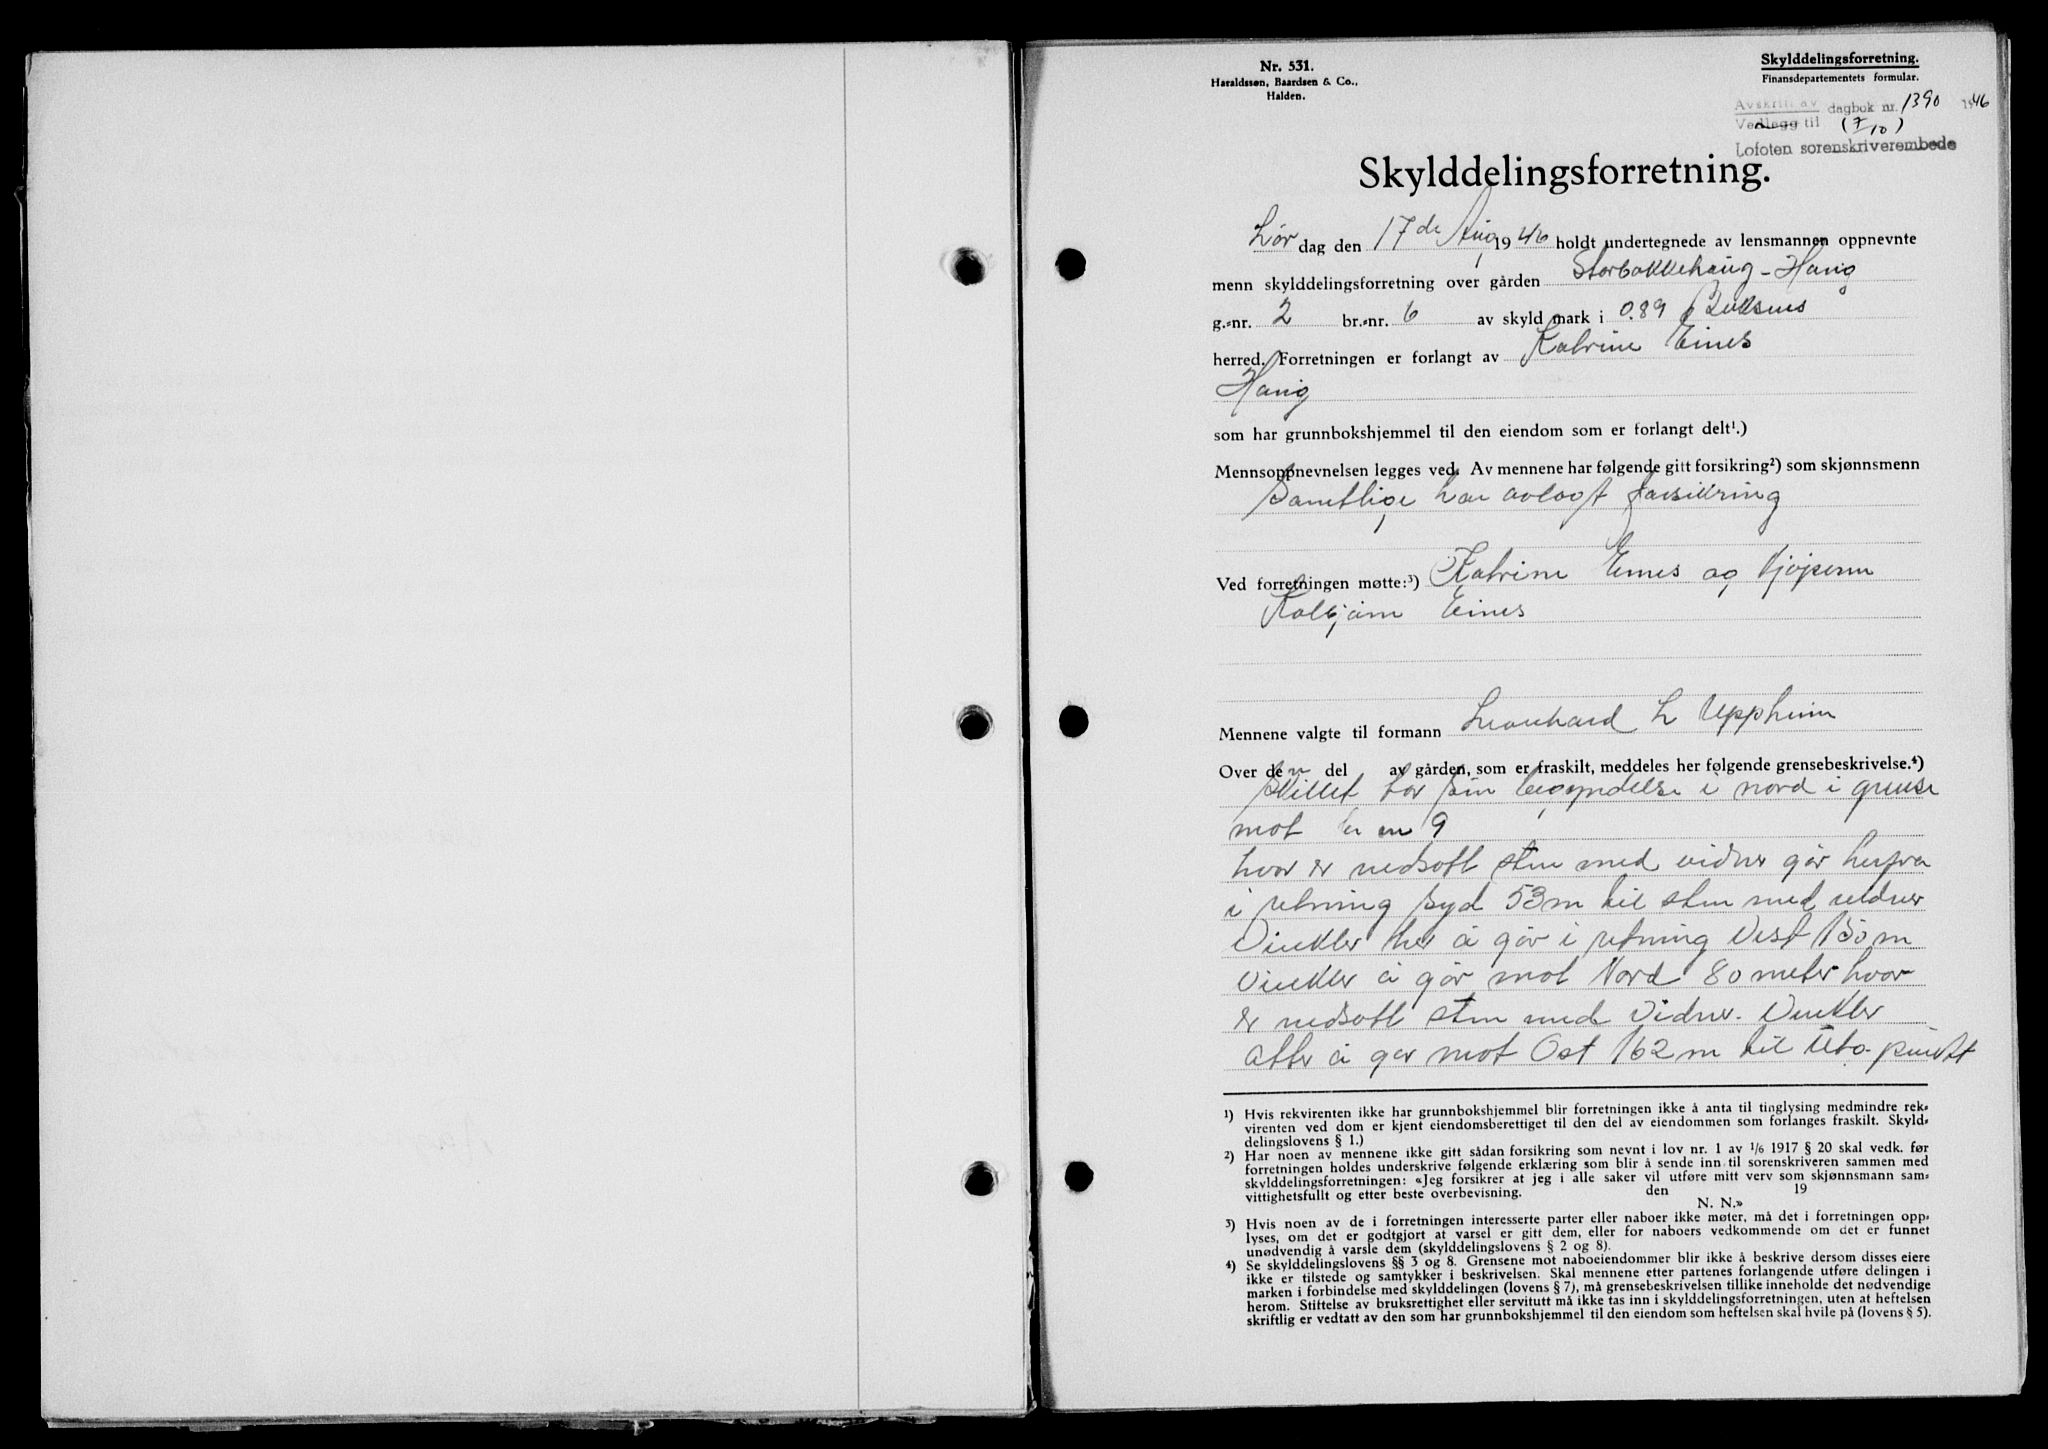 Nr. 531.
Haraldssøn, Baardsen & Co.,
Halden.
Skylddelingsforretning.
Finansdepartementets formular.
Avskrift av dagbok nr. 1390 1946
Vedlegg til (7/10)
Lofoten sorenskriverembede
Skylddelingsforretning.
Lør dag den 17de Aug 1946 holdt undertegnede av lensmannen oppnevnte
menn skylddelingsforretning over gården Storbakkehaug - Haug
g.=nr. 2 br.=nr. 6 av skyld mark i 0.89 Buksnes
herred. Forretningen er forlangt av Katrine Eines
Haug
som har grunnbokshjemmel til den eiendom som er forlangt delt¹.)
Mennsoppnevnelsen legges ved. Av mennene har følgende gitt forsikring²) som skjønnsmenn
Samtlige har avlagt forsikring
Ved forretningen møtte:³) Katrine Eines og kjøperen
Kolbjørn Eines
Mennene valgte til formann Leonhard L Uppheim
Over den del av gården, som er fraskilt, meddeles her følgende grensebeskrivelse.⁴)
Skillet har sin begyndelse i nord i grense
mot br nr 9
hvor er nedsatt sten med vidner går herfra
i retning syd 53 m til sten med vidner
Vinkler her å går i retning Vest 150 m
Vinkler å går mot Nord 80 meter hvor
er nedsatt sten med Vidner. Vinkler
atter å går mot Ost 162 m til punkt
1) Hvis rekvirenten ikke har grunnbokshjemmel blir forretningen ikke å anta til tinglysing medmindre rek=
virenten ved dom er kjent eiendomsberettiget til den del av eiendommen som forlanges fraskilt. Skyld=
delingslovens § 1.)
2) Har noen av mennene ikke gitt sådan forsikring som nevnt i lov nr. 1 av 1/6 1917 § 20 skal vedk. før
forretningen holdes underskrive følgende erklæring som blir å sende inn til sorenskriveren sammen med
skylddelingsforretningen: «Jeg forsikrer at jeg i alle saker vil utføre mitt verv som skjønnsmann sam=
vittighetsfullt og etter beste overbevisning. den 19
N. N.»
3) Hvis noen av de i forretningen interesserte parter eller naboer ikke møter, må det i forretningen opp=
lyses, om det er godtgjort at varsel er gitt dem, eller for naboers vedkommende om det er funnet
unødvendig å varsle dem (skylddelingslovens § 2 og 8).
4) Se skylddelingslovens §§ 3 og 8. Grensene mot naboeiendommer blir ikke å beskrive dersom disses eiere
ikke er tilstede og samtykker i beskrivelsen. Skal mennene etter partenes forlangende utføre delingen i
marken i forbindelse med skylddelingen (lovens § 7), må grensebeskrivelsen tillike inneholde det nødvendige
herom. Stiftelse av bruksrettighet eller servitutt må ikke tas inn i skylddelingsforretningen, uten at heftelsen
skriftlig er vedtatt av den som har grunnbokshjemmel til den eiendom som heftelsen skal hvile på (lovens § 5).